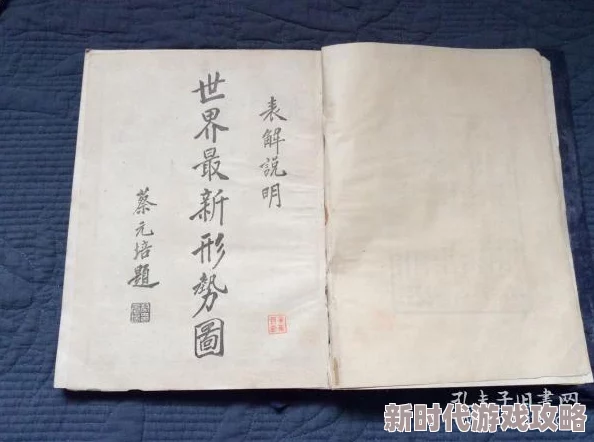 表解說明
世界最新形勢圖
蔡元培題
孔夫子旧書网
新时代游戏攻略